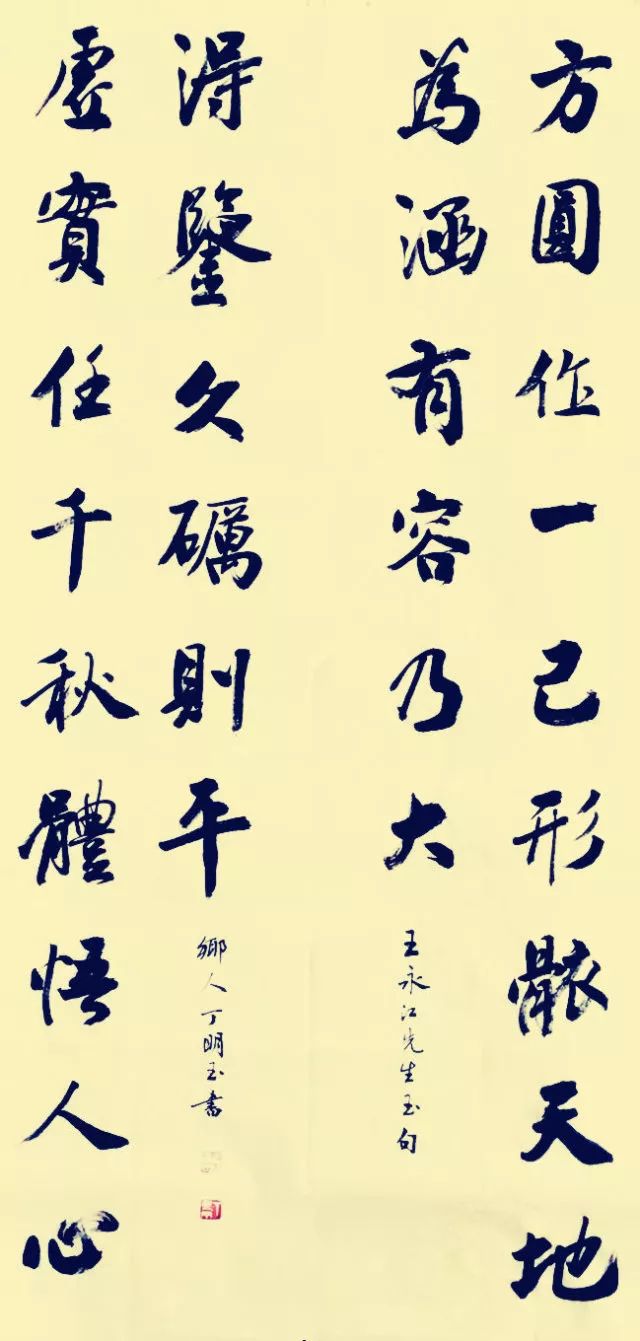 方圓作一己形骸天地
為涵有容乃大
王永江先生玉句
虛實任千秋體悟人心
得鑒久礪則平
鄉人丁明玉書